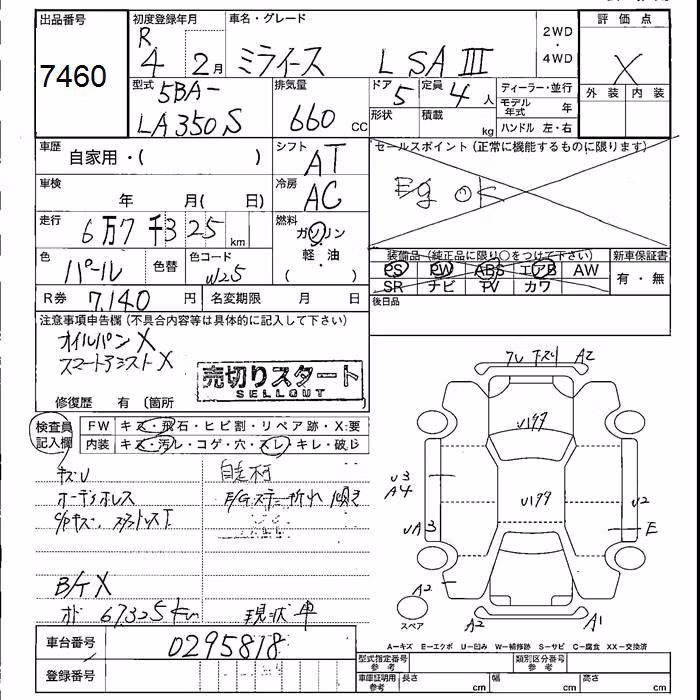 出品番号
7460
初度登録年月
R
4 2月
車名・グレード
ミライース L SAⅢ
2WD
・
4WD
評価点
X
外装 内装
型式
5BA-
LA350S
排気量
660 CC
ドア
5
定員
4人
形状
積載
kg
ディーラー・並行
モデル年式 年
ハンドル 左・右
車歴
自家用・( )
シフト
AT
セールスポイント(正常に機能するものに限ります)
Eg OK
車検
年 月( 日)
冷房
AC
走行
6万7千325 km
燃料
ガソリン
軽・油
( )
色
パール
色替
色コード
W25
装備品(純正品に限り○をつけて下さい)
PS PW ABS エアB AW
SR ナビ TV カワ
新車保証書
有・無
R券 7,140円
名変期限 月 日
後日品
注意事項申告欄(不具合内容等は具体的に記入して下さい)
オイルパンX
スマートアシストX
売切りスタート
SELLOUT
修復歴 有(箇所
検査員記入欄
FW キズ・飛石・ヒビ割・リペア跡・X:要
内装 キズ・汚レ・コゲ・穴・スレ・キレ・破レ
キズU
オーディオレス
自走不可
B/ケX
オド 67325km
現状車
車台番号
0295818
登録番号
フレ 下スリ A2
U177
U177
U3
A4
UA3
U2
E
A2
A2
A1
スペア
A-キズ E-エクボ U-凹み W-補修跡 S-サビ C-腐食 XX-交換済
型式指定番号
参考
類別区分番号
参考
車庫証明用
参考
長さ cm
幅 cm
高さ cm